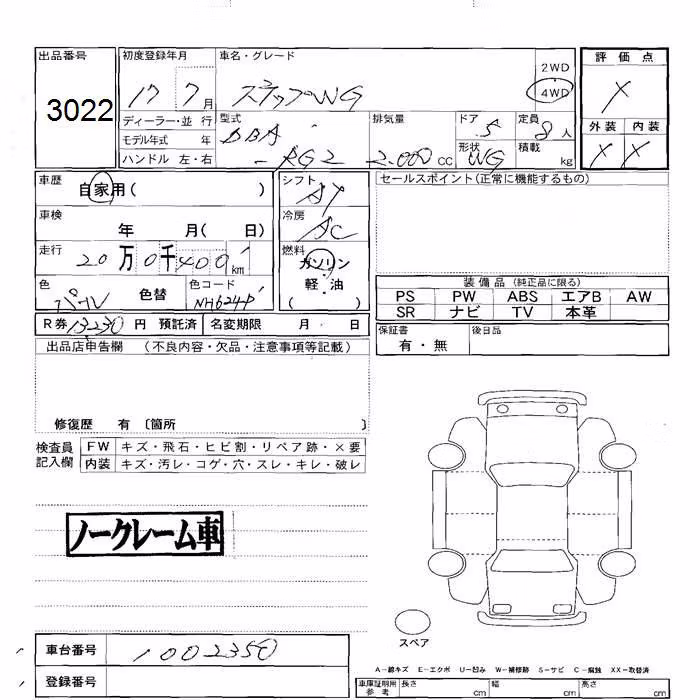 出品番号 初度登録年月 車名・グレード 評価点
3022 17 7月 ステップWG 2WD 4WD X
ディーラー・並行 型式 排気量 ドア 定員 外装 内装
モデル年式 年 DBA 5 8人 X X
ハンドル 左・右 -RG2 2.000 cc 形状 WG 積載 kg
車歴 自家用( ) シフト AT セールスポイント(正常に機能するもの)
車検 年 月( 日) 冷房 AC
走行 20万0千400km 燃料 ガソリン
軽・油
( )
色 パール 色替 色コード NH624P 装備品(純正品に限る)
PS PW ABS エアB AW
SR ナビ TV 本革
R券 13230円 預託済 名変期限 月 日 保証書 後日品
有・無
出品店申告欄 (不良内容・欠品・注意事項等記載)
修復歴 有 〔箇所 〕
検査員 FW キズ・飛石・ヒビ割・リペア跡・×要
記入欄 内装 キズ・汚レ・コゲ・穴・スレ・キレ・破レ
ノークレーム車
スペア
車台番号 1002350
A-線キズ E-エクボ U-凹み W-補修跡 S-サビ C-腐蝕 XX-取替済
登録番号 車庫証明用 参考 長さ cm 幅 cm 高さ cm